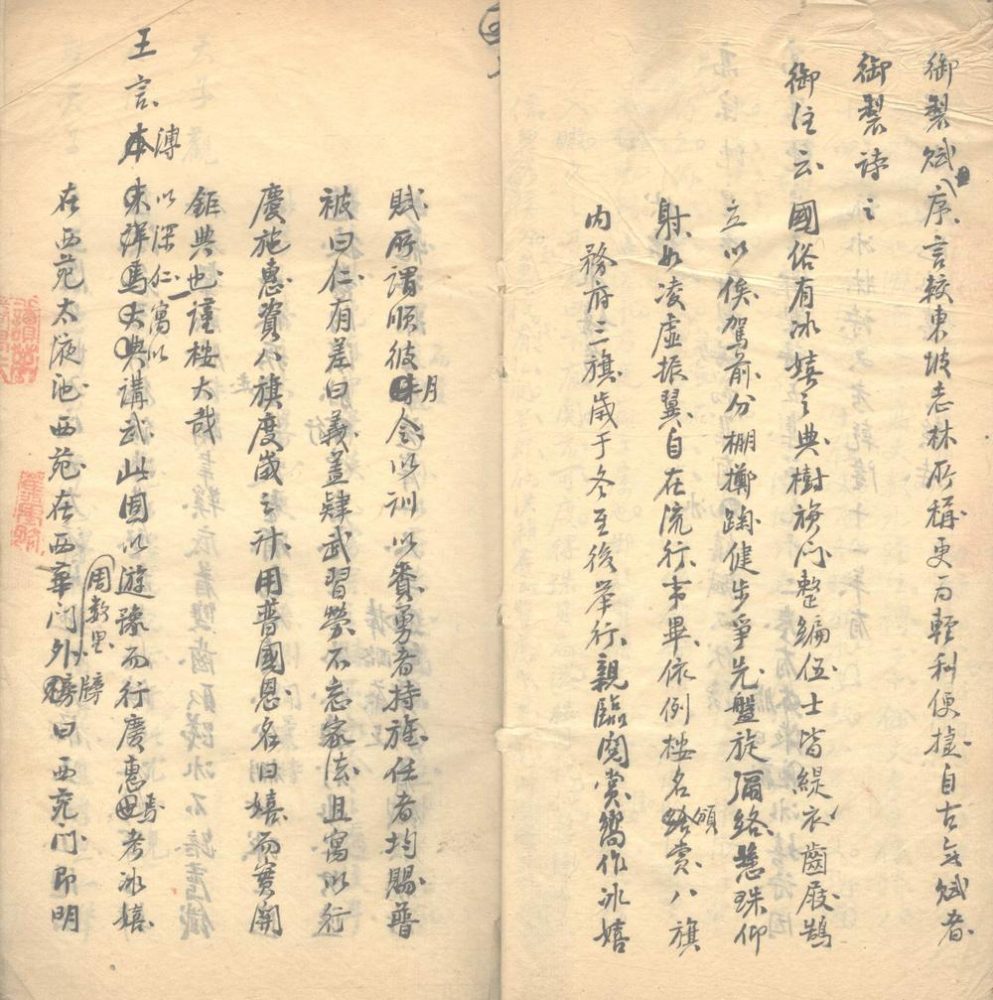 御製賦序言較東坡志林所稱更為輕利便捷自古無賦者
御製詩之
御注云國俗有冰嬉之典樹旗門整編伍士皆緹衣齒屐鵠
立以俟駕前分棚擲踘健步爭先盤旋彌絡懸珠仰
射如凌虛振翼自在流行事畢依例按名頒賞八旗
內務府三旗歲于冬至後舉行親臨閱賞嚮作冰嬉
賦所謂順彼月令以訓以賚勇者持旌任者均賜普
被曰仁有差曰義蓋肄武習勞不忘家法且寓以行
慶施惠資八旗度歲之計用普國恩名曰嬉而實開
鉅典也謹按大哉
王言溥以深仁寓以
講武此固以遊豫而行慶惠焉考冰嬉
在西苑太液池西苑在西華門外周數里牓曰西苑門即明